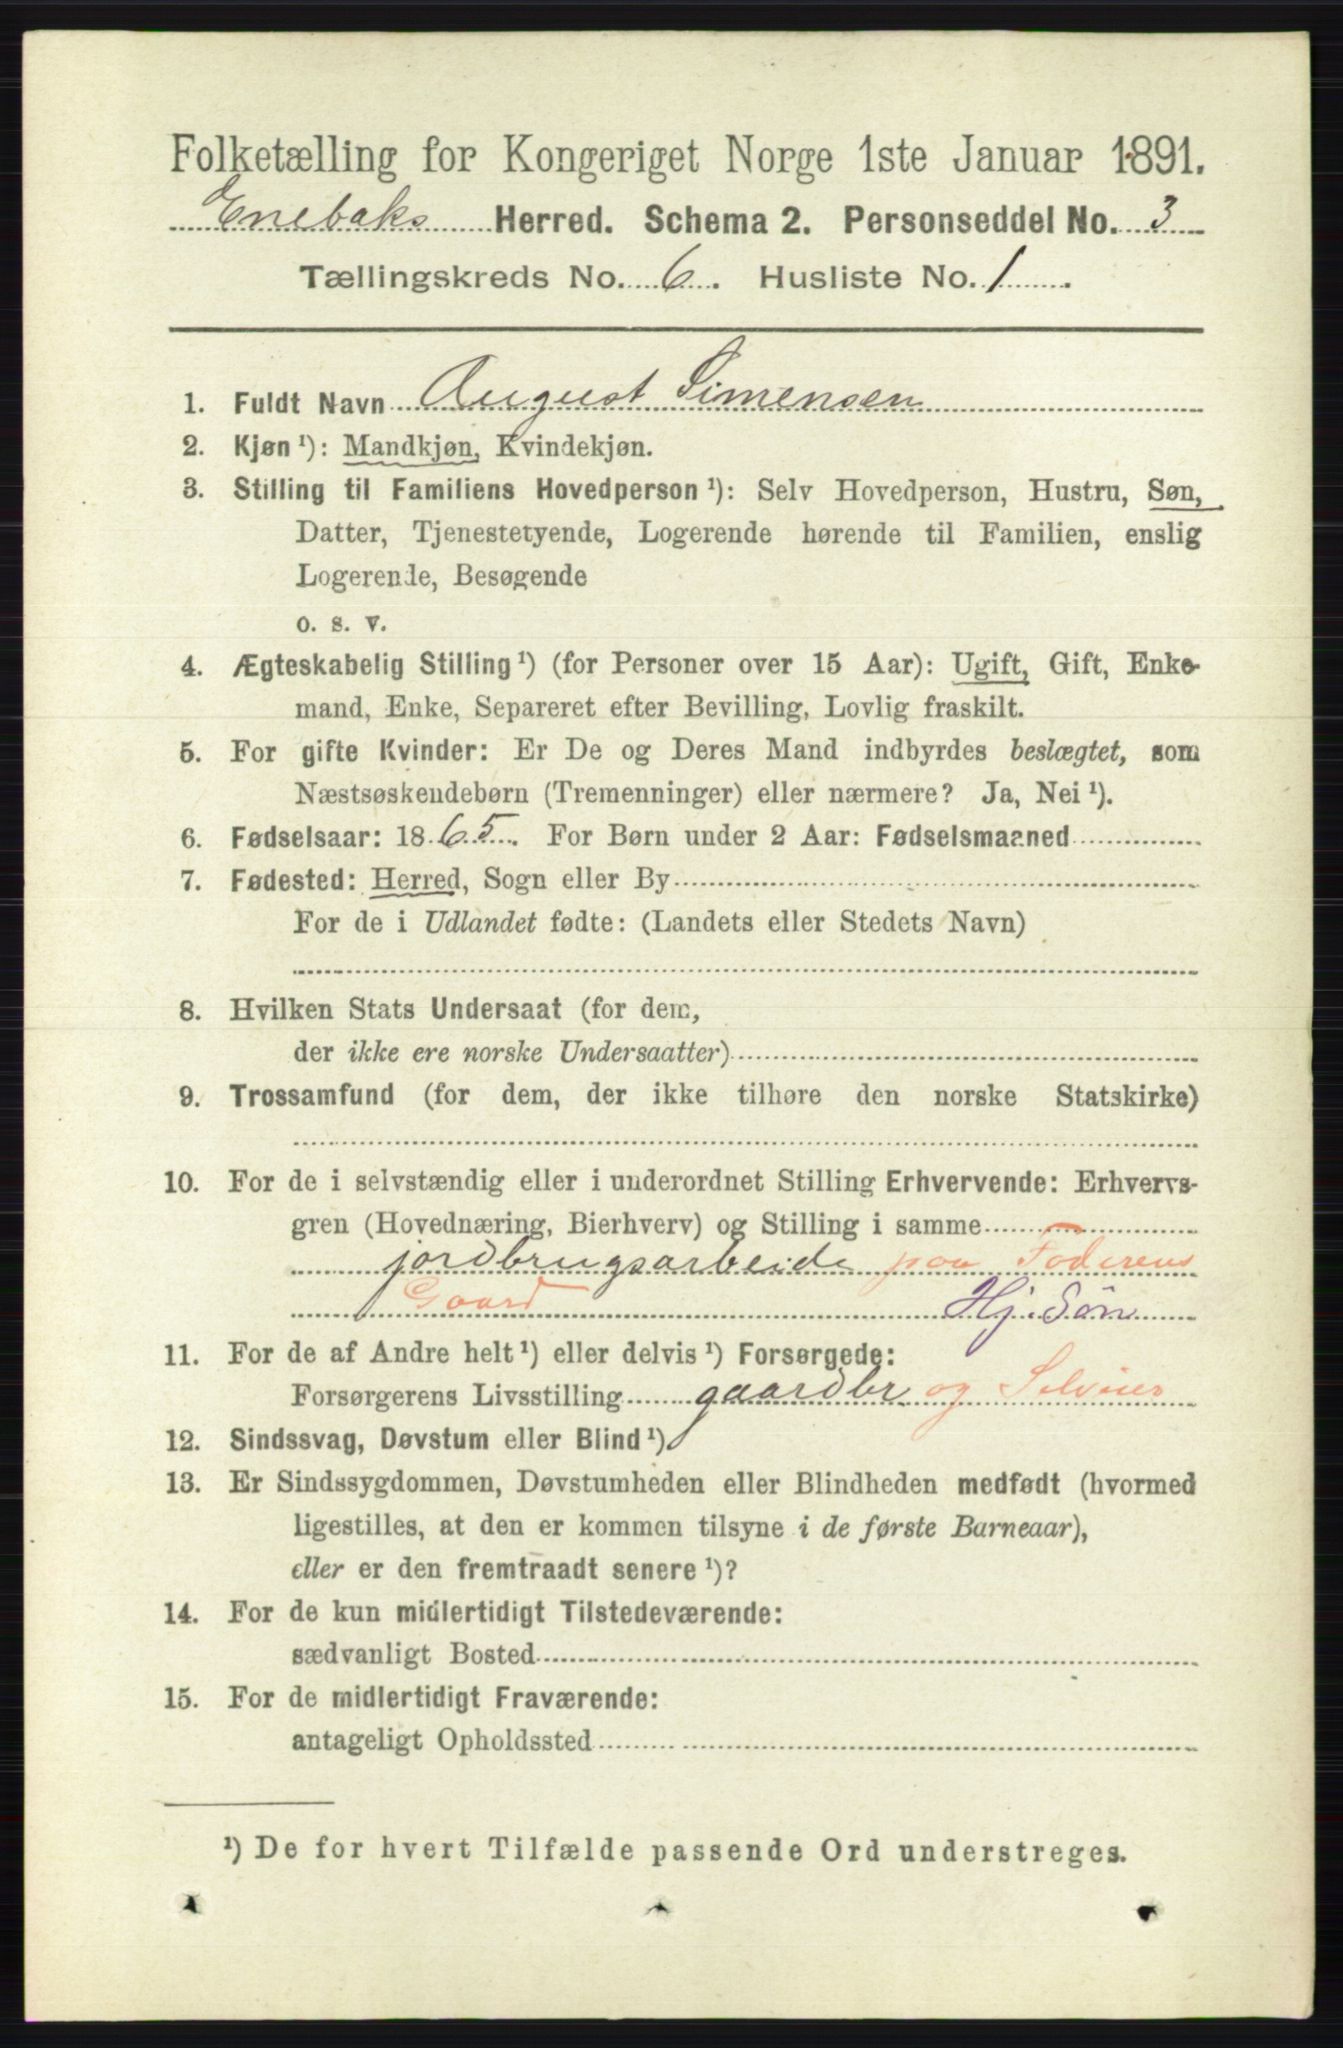 Folketælling for Kongeriget Norge 1ste Januar 1891.
Enebaks Herred. Schema 2. Personseddel No. 3
Tællingskreds No. 6. Husliste No. 1.
1. Fuldt Navn August Simensen
2. Kjøn¹): Mandkjøn, Kvindekjøn.
3. Stilling til Familiens Hovedperson¹): Selv Hovedperson, Hustru, Søn,
Datter, Tjenestetyende, Logerende hørende til Familien, enslig
Logerende, Besøgende
o. s. v.
4. Ægteskabelig Stilling¹) (for Personer over 15 Aar): Ugift, Gift, Enke-
mand, Enke, Separeret efter Bevilling, Lovlig fraskilt.
5. For gifte Kvinder: Er De og Deres Mand indbyrdes beslægtet, som
Næstsøskendebørn (Tremenninger) eller nærmere? Ja, Nei¹).
6. Fødselsaar: 1865. For Børn under 2 Aar: Fødselsmaaned
7. Fødested: Herred, Sogn eller By
For de i Udlandet fødte: (Landets eller Stedets Navn)
8. Hvilken Stats Undersaat (for dem,
der ikke ere norske Undersaatter)
9. Trossamfund (for dem, der ikke tilhøre den norske Statskirke)
10. For de i selvstændig eller i underordnet Stilling Erhvervende: Erhvervs-
gren (Hovednæring, Bierhverv) og Stilling i samme
jordbrugsarbeide paa Faderens
Gaard Hj. Søn
11. For de af Andre helt¹) eller delvis¹) Forsørgede:
Forsørgerens Livsstilling gaardbr. og Selveier
12. Sindssvag, Døvstum eller Blind¹)
13. Er Sindssygdommen, Døvstumheden eller Blindheden medfødt (hvormed
ligestilles, at den er kommen tilsyne i de første Barneaar),
eller er den fremtraadt senere¹)?
14. For de kun midlertidigt Tilstedeværende:
sædvanligt Bosted
15. For de midlertidigt Fraværende:
antageligt Opholdssted
¹) De for hvert Tilfælde passende Ord understreges.